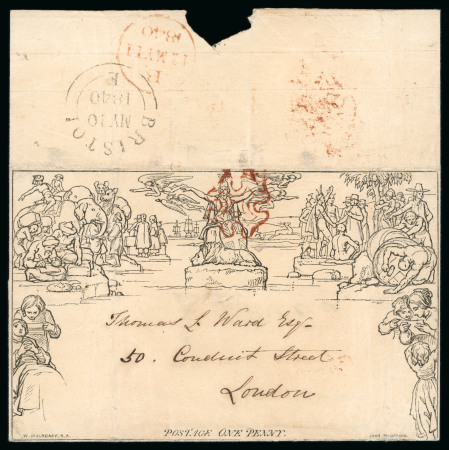 BRISTOL
MY 10
1840
E
12 MY 12
1840
Thomas L Ward Esqr
50. Conduit Street
London
POSTAGE ONE PENNY.
W. MULREADY, R.A.
JOHN THOMPSON